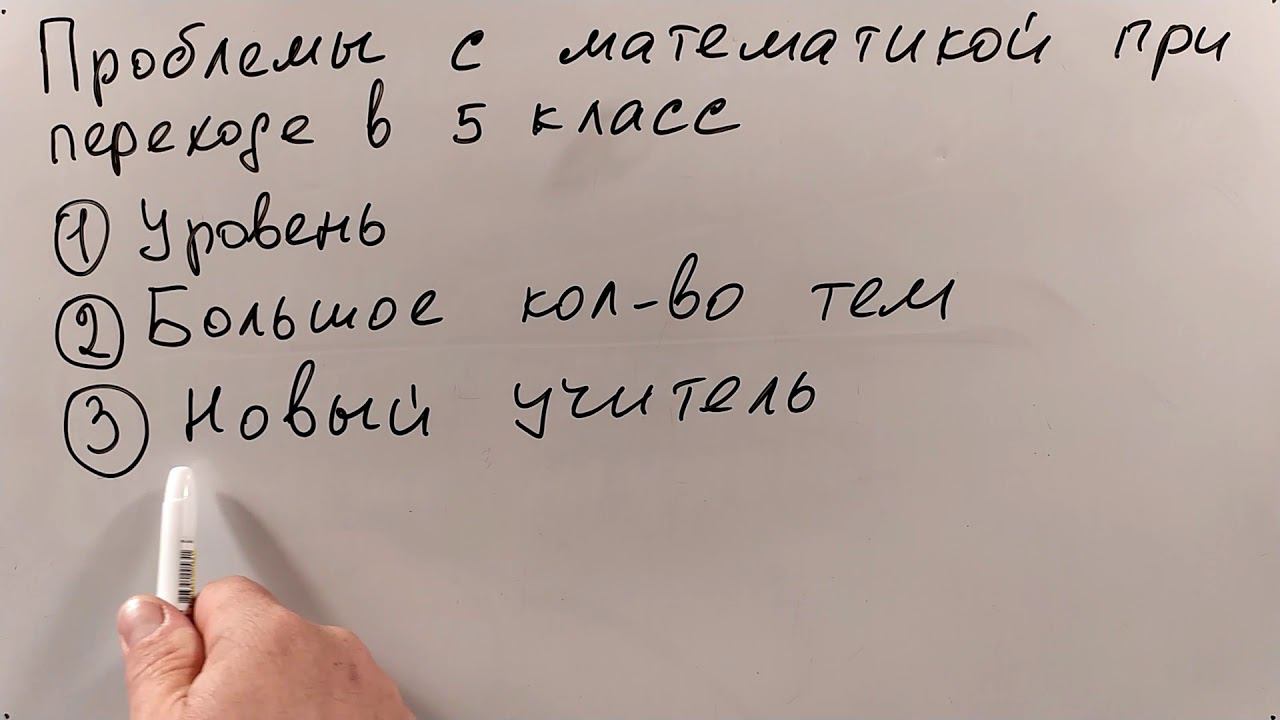 Проблемы с математикой при
переходе в 5 класс
1 Уровень
2 Большое кол-во тем
3 Новый учитель